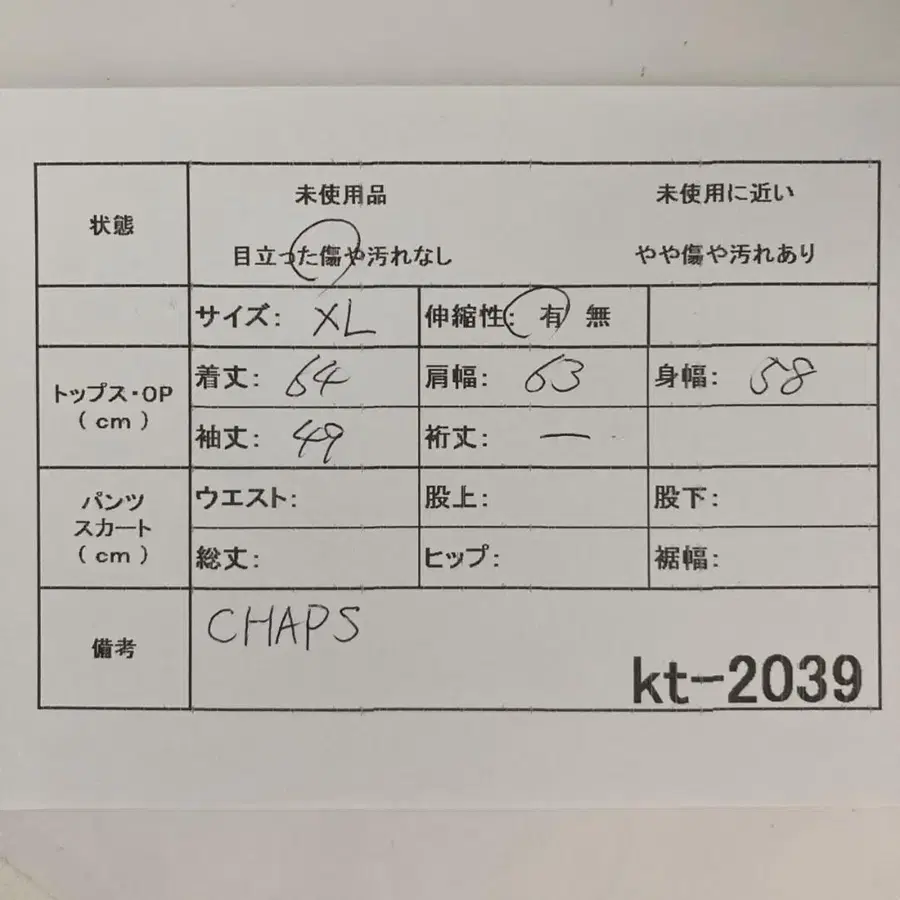 状態
未使用品 未使用に近い
目立った傷や汚れなし やや傷や汚れあり
サイズ: XL 伸縮性: 有 無
トップス・OP
(cm)
着丈: 64 肩幅: 63 身幅: 58
袖丈: 49 裄丈: —
パンツ
スカート
(cm)
ウエスト: 股上: 股下:
総丈: ヒップ: 裾幅:
備考
CHAPS
kt-2039